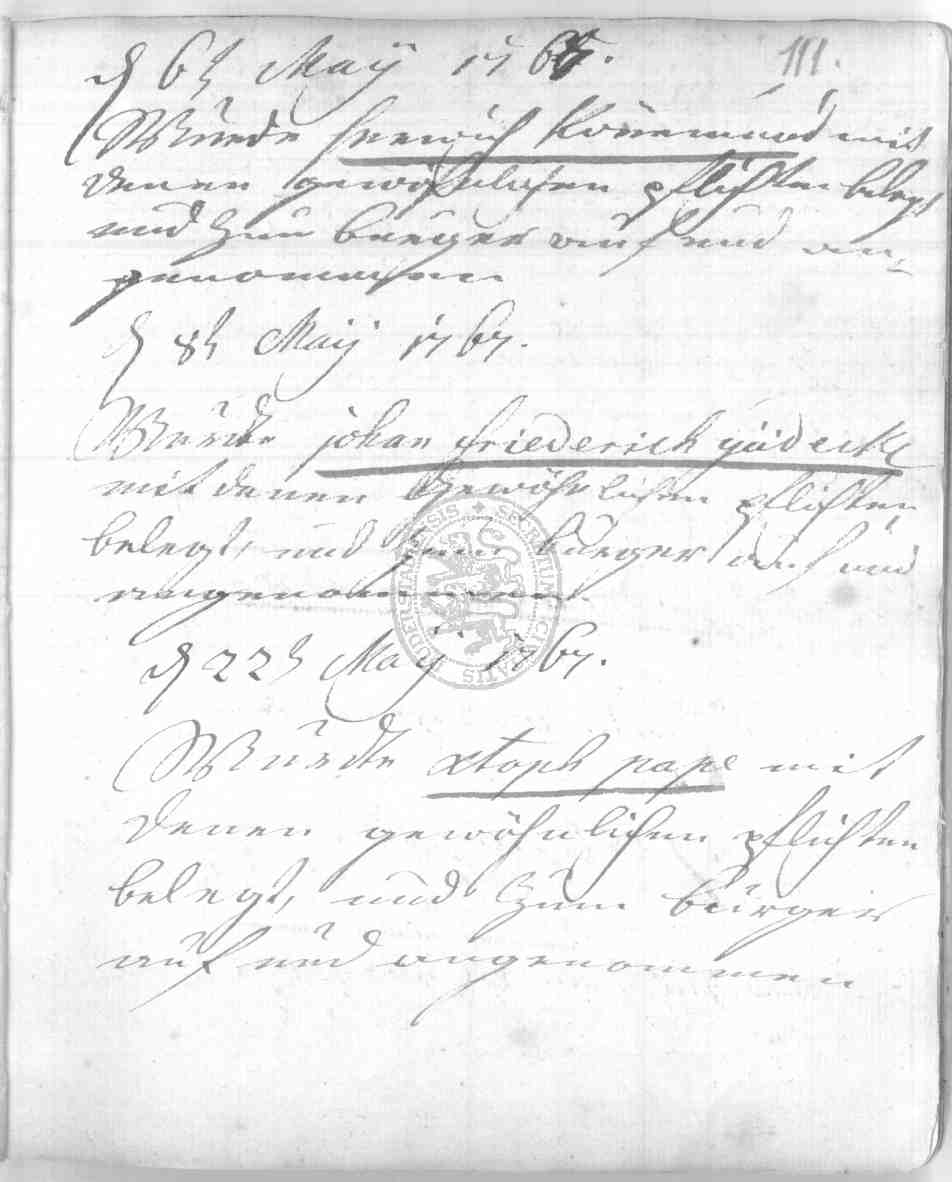 111.
d 6t Maÿ 1767.
Wurde henrich Könemund mit
denen gewöhnlichen pflichten belegt
und zum bürger auf und an=
genommen
d 8t Maij 1767.
Wurde johan friederich gädecke
mit denen gewöhnlichen pflichten
belegt, und zum bürger auf und
angenommen
d 22t Maÿ 1767.
Wurdte xtoph pape mit
denen gewöhnlichen pflichten
belegt, und zum bürger
auf und angenommen